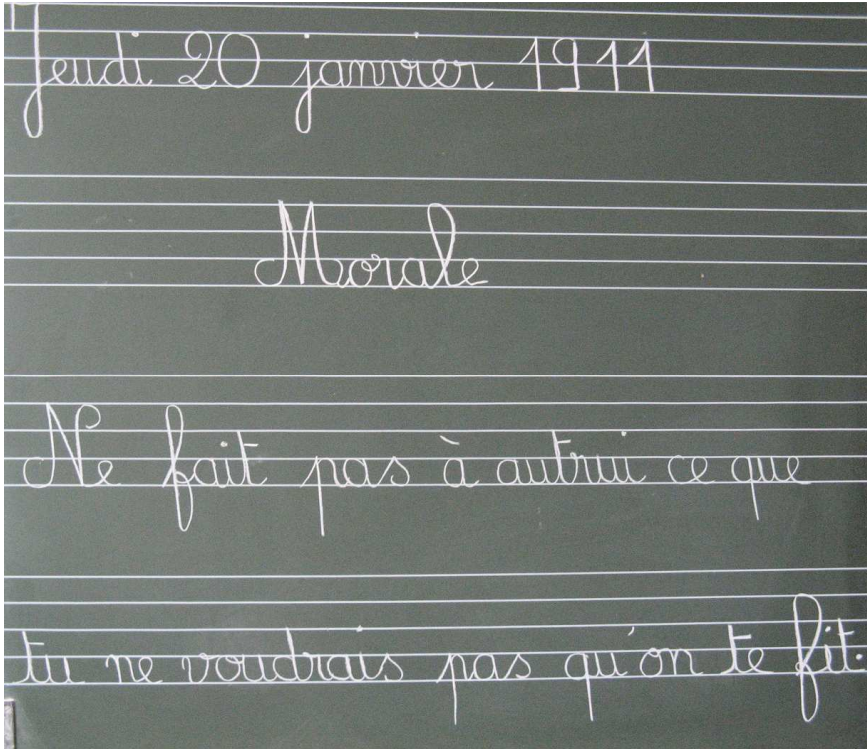 Jeudi 20 janvier 1911
Morale
Ne fait pas à autrui ce que
tu ne voudrais pas qu'on te fit.